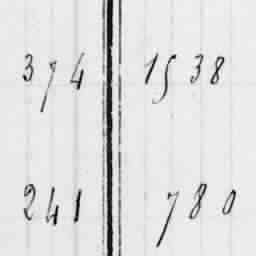 374 1538
241 780